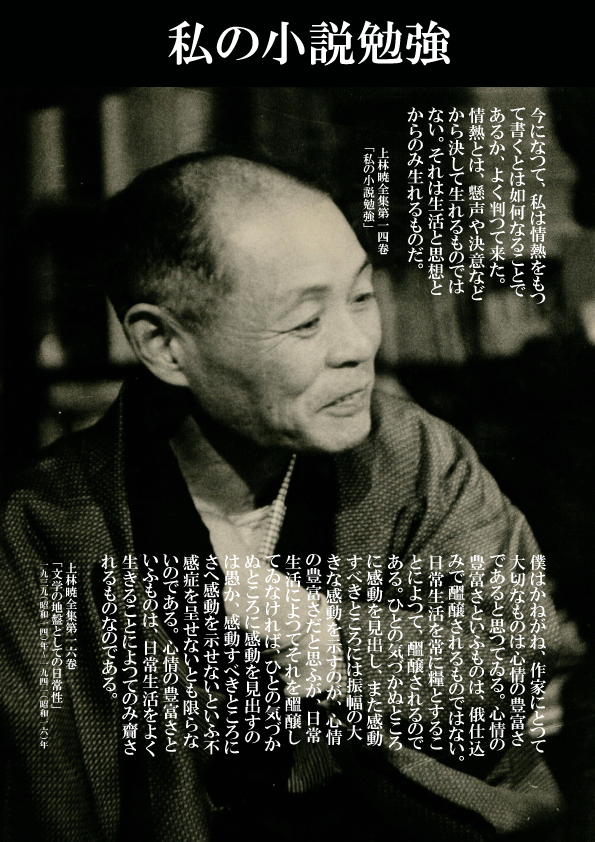 私の小説勉強
今になつて、私は情熱をもつ
て書くとは如何なることで
あるか、よく判つて来た。
情熱とは、懸声や決意など
から決して生れるものでは
ない。それは生活と思想と
からのみ生れるものだ。
上林暁全集第一四巻
「私の小説勉強」
僕はかねがね、作家にとつて
大切なものは心情の豊富さ
であると思つてゐる。心情の
豊富さといふものは、俄仕込
みで醞醸されるものではない。
日常生活を常に糧とするこ
とによつて、醞醸されるので
ある。ひとの気づかぬところ
に感動を見出し、また感動
すべきところには振幅の大
きな感動を示すのが、心情
の豊富さだと思ふが、日常
生活によつてそれを醞醸し
てゐなければ、ひとの気づか
ぬところに感動を見出すの
は愚か、感動すべきところに
さへ感動を示せないといふ不
感症を呈せないとも限らな
いのである。心情の豊富さと
いふものは、日常生活をよく
生きることによつてのみ齎さ
れるものなのである。
上林暁全集第一六巻
「文学の地盤としての日常性」